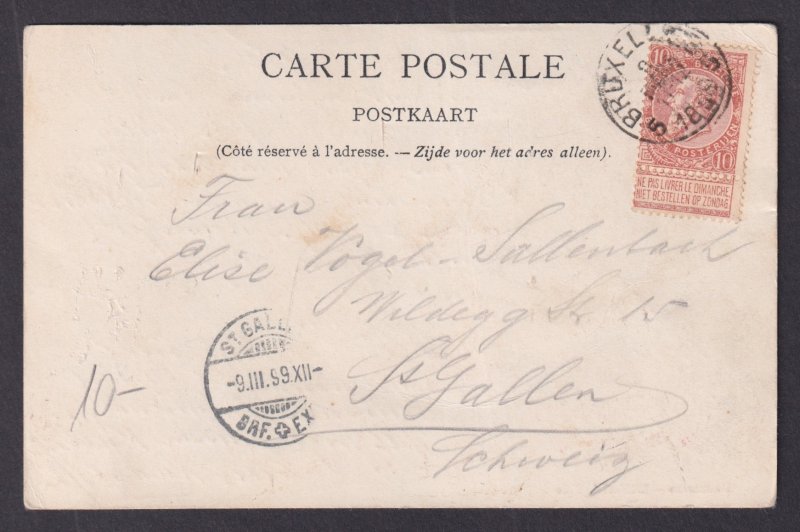 CARTE POSTALE
POSTKAART
(Côté réservé à l'adresse. — Zijde voor het adres alleen).
BRUXELL
10
10
POSTERIJEN
NE PAS LIVRER LE DIMANCHE
NIET BESTELLEN OP ZONDAG
Frau
Elise Vogel-Sallenbach
Wildegg Str. 15
St Gallen
Schweiz
ST GALL
-9.III.99.XII-
BRF. EX
10-